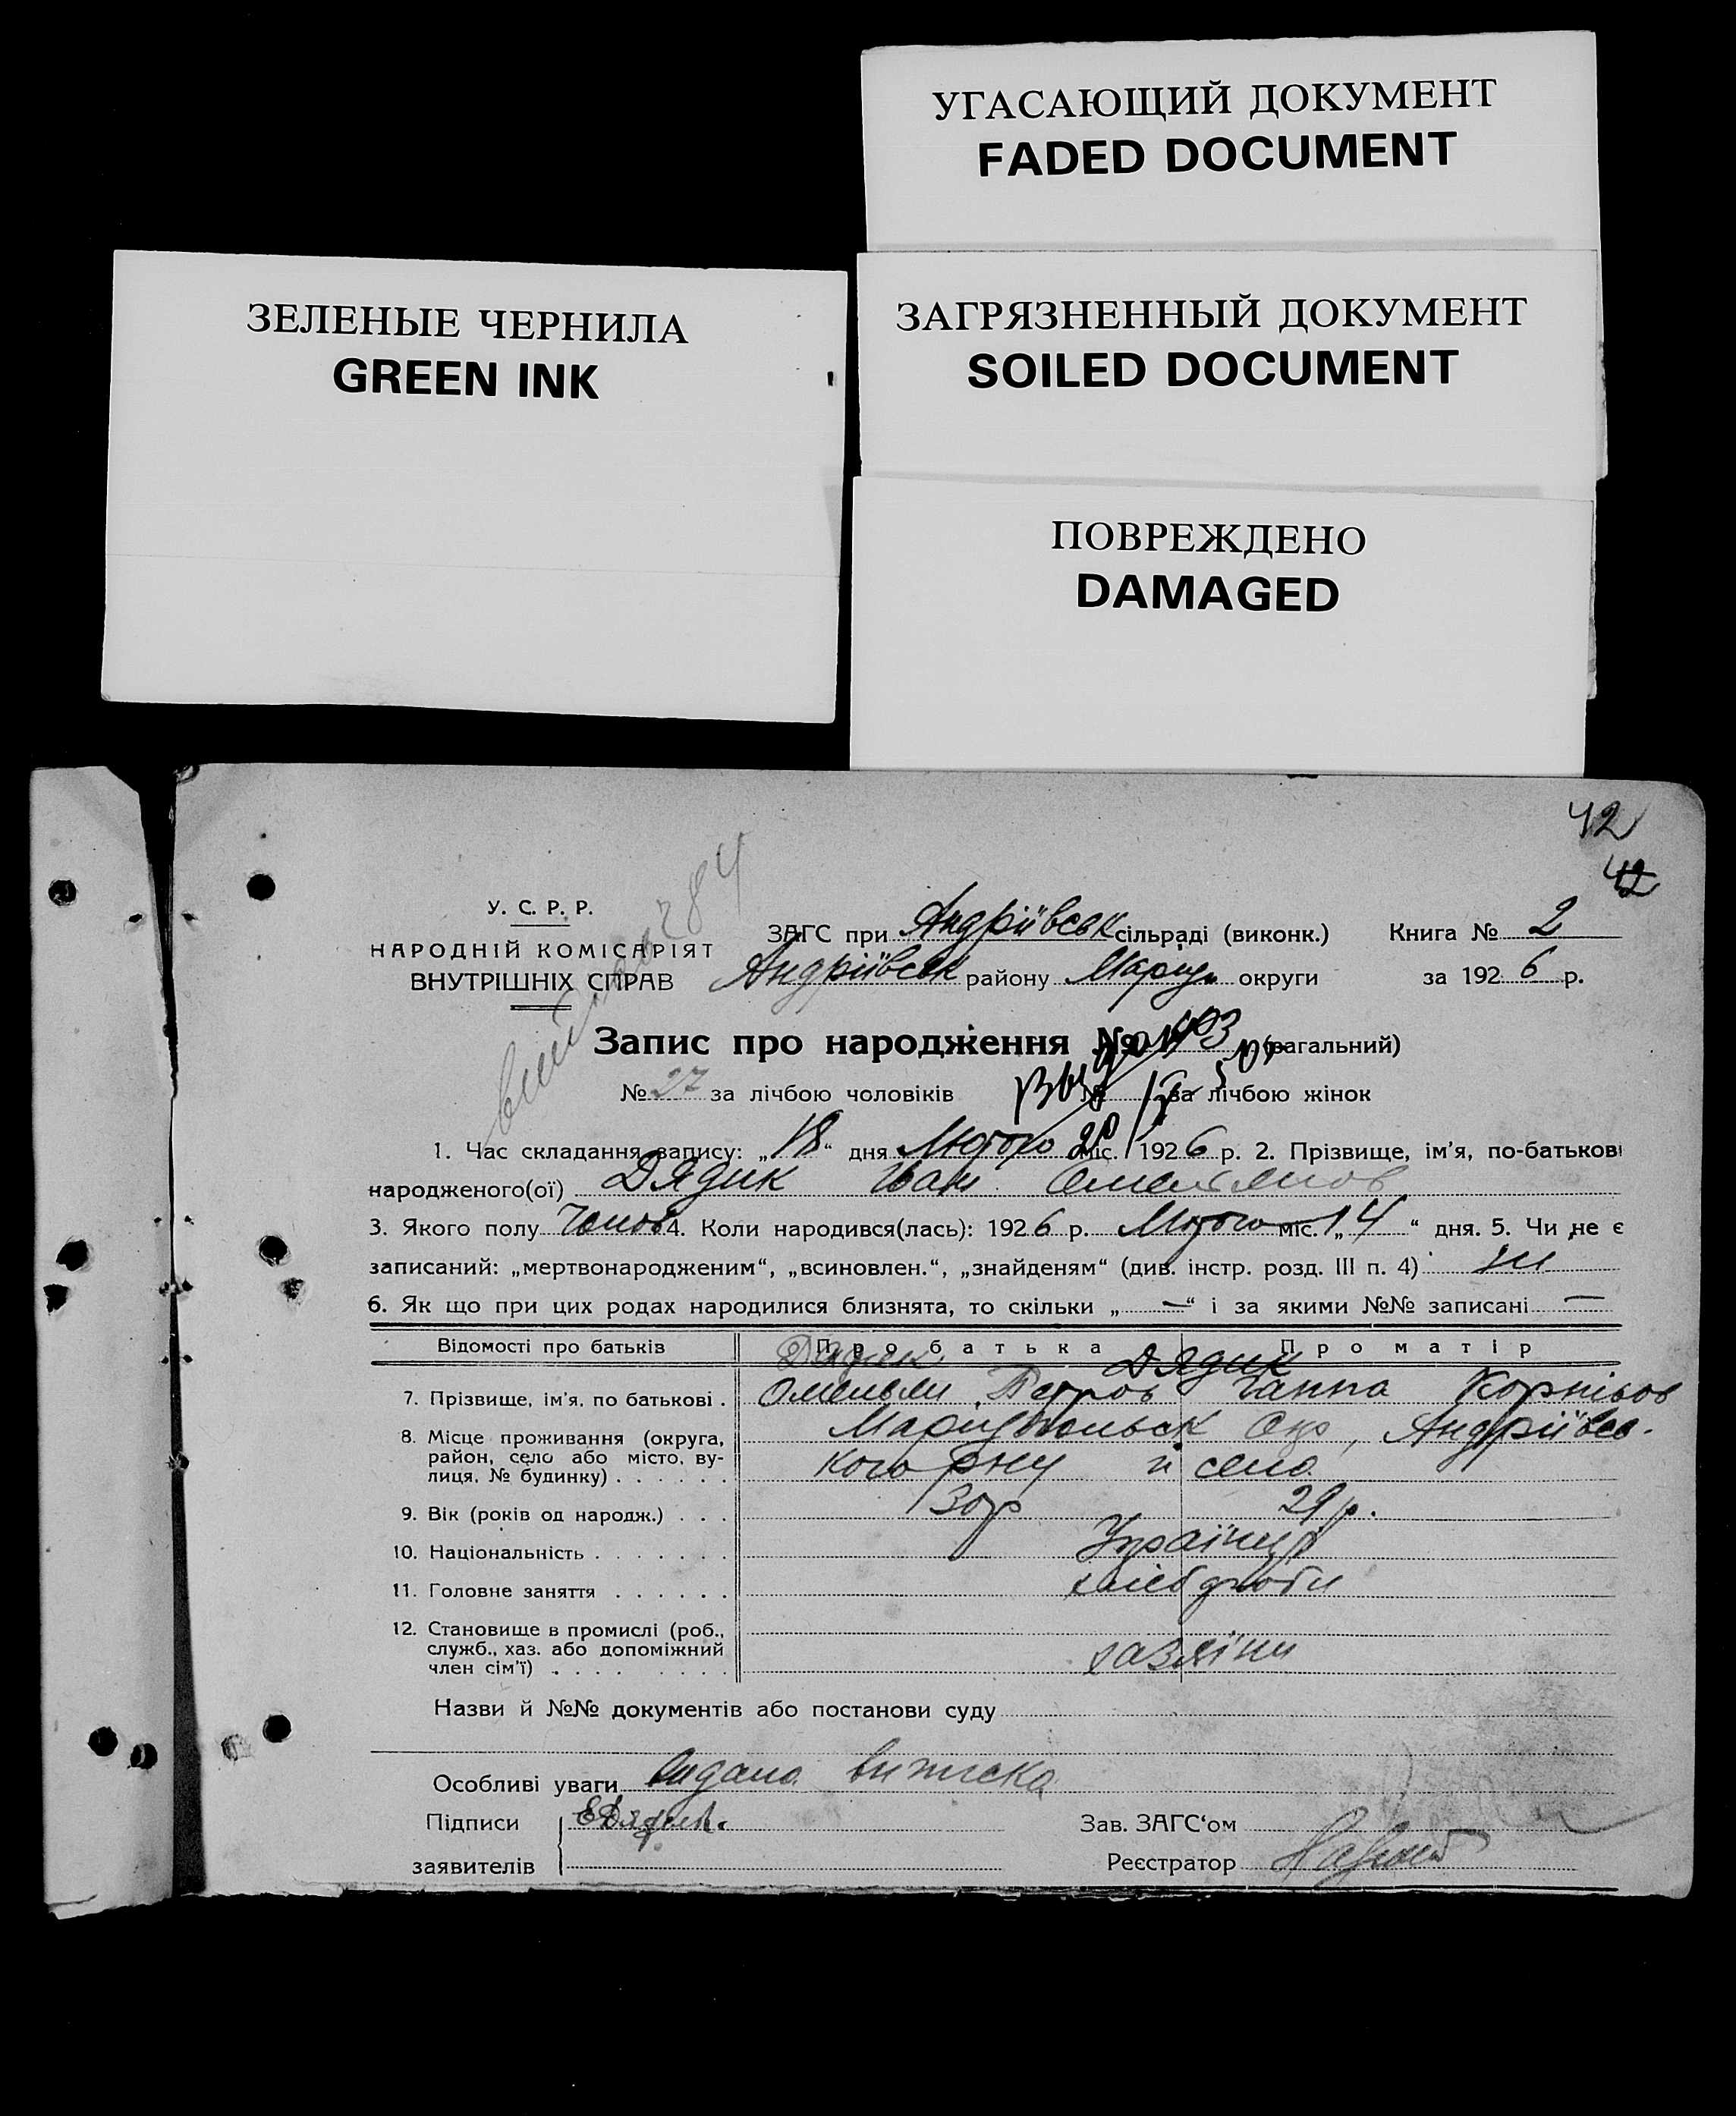 УГАСАЮЩИЙ ДОКУМЕНТ
FADED DOCUMENT
ЗЕЛЕНЫЕ ЧЕРНИЛА
GREEN INK
ЗАГРЯЗНЕННЫЙ ДОКУМЕНТ
SOILED DOCUMENT
ПОВРЕЖДЕНО
DAMAGED
42
42
284
У. С. Р. Р.
НАРОДНІЙ КОМІСАРІЯТ
ВНУТРІШНІХ СПРАВ
ЗАГС при Андріївськ сільраді (виконк.) Книга № 2
Андріївськ району Маріуп округи за 1926 р.
Запис про народження № (загальний)
№ 27 за лічбою чоловіків № за лічбою жінок
1. Час складання запису: „18“ дня Лютого міс. 1926 р. 2. Прізвище, ім'я, по-батькові
народженого(ої) Дядик Іван Омелянов
3. Якого полу Чолов 4. Коли народився(лась): 1926 р. Лютого міс. „14“ дня. 5. Чи не є
записаний: „мертвонародженим“, „всиновлен.“, „знайденям“ (див. інстр. розд. III п. 4) ні
6. Як що при цих родах народилися близнята, то скільки „—“ і за якими №№ записані —
Відомості про батьків Про батька Про матір
Дядик Дядик
7. Прізвище, ім'я, по батькові . Омельян Петров Ганна Корніьов
8. Місце проживання (округа, район, село або місто, вулиця, № будинку) . . . . . . Маріупольськ Окр, Андріївсь-
кого рну й села
9. Вік (років од народж.) . . . 30р 29 р.
10. Національність . . . . . . . Українці
11. Головне заняття . . . . . . хліборoби
12. Становище в промислі (роб., служб., хаз. або допоміжний член сім'ї) . . . . . . . . . хазяїни
Назви й №№ документів або постанови суду
Особливі уваги видана виписка
Підписи ЕДядик Зав. ЗАГС'ом
заявителів Реєстратор